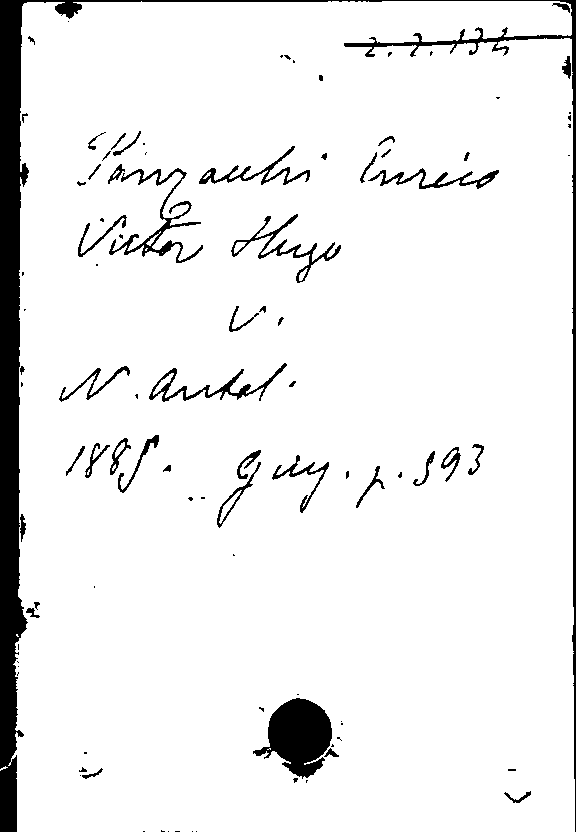 2.2.132
Panzacchi Enrico
Victor Hugo
V.
N. Antol.
1885. Giug. p. 393